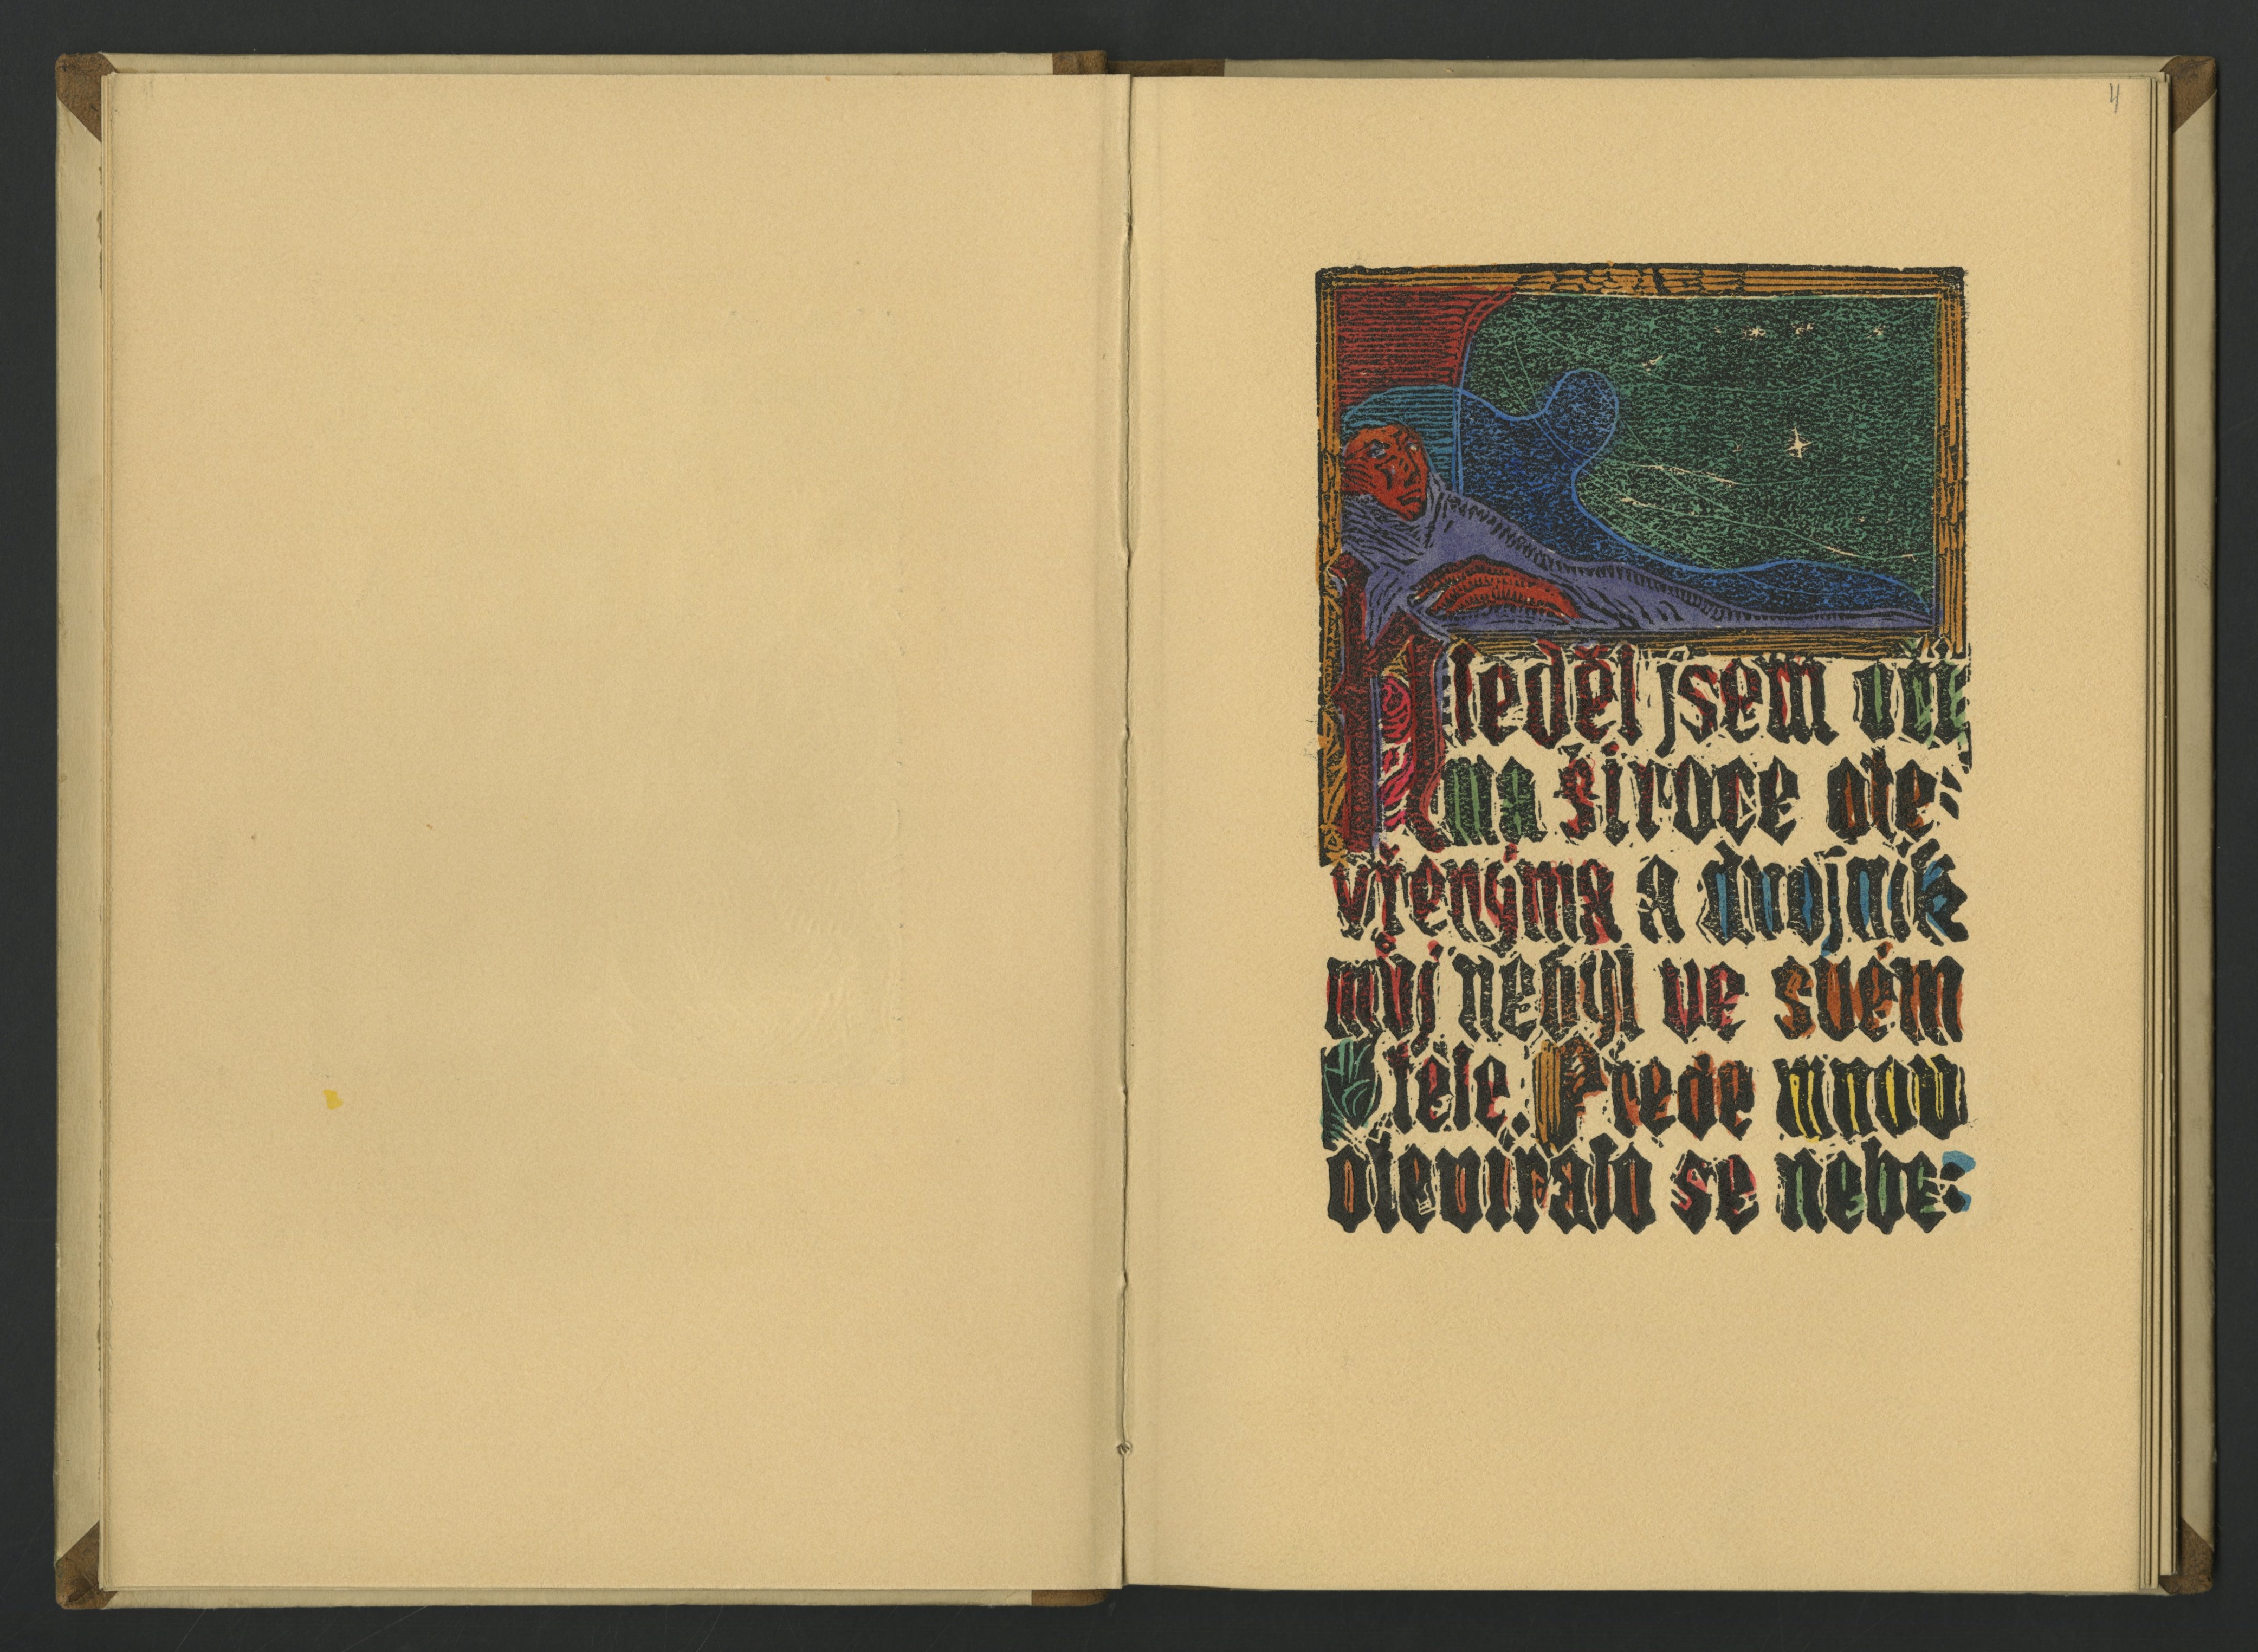 4
Hleděl jsem oči
ma široce ote:
vřenýma a dvojník
můj nebyl ve svém
těle. Přede mnou
otevíralo se nebe: